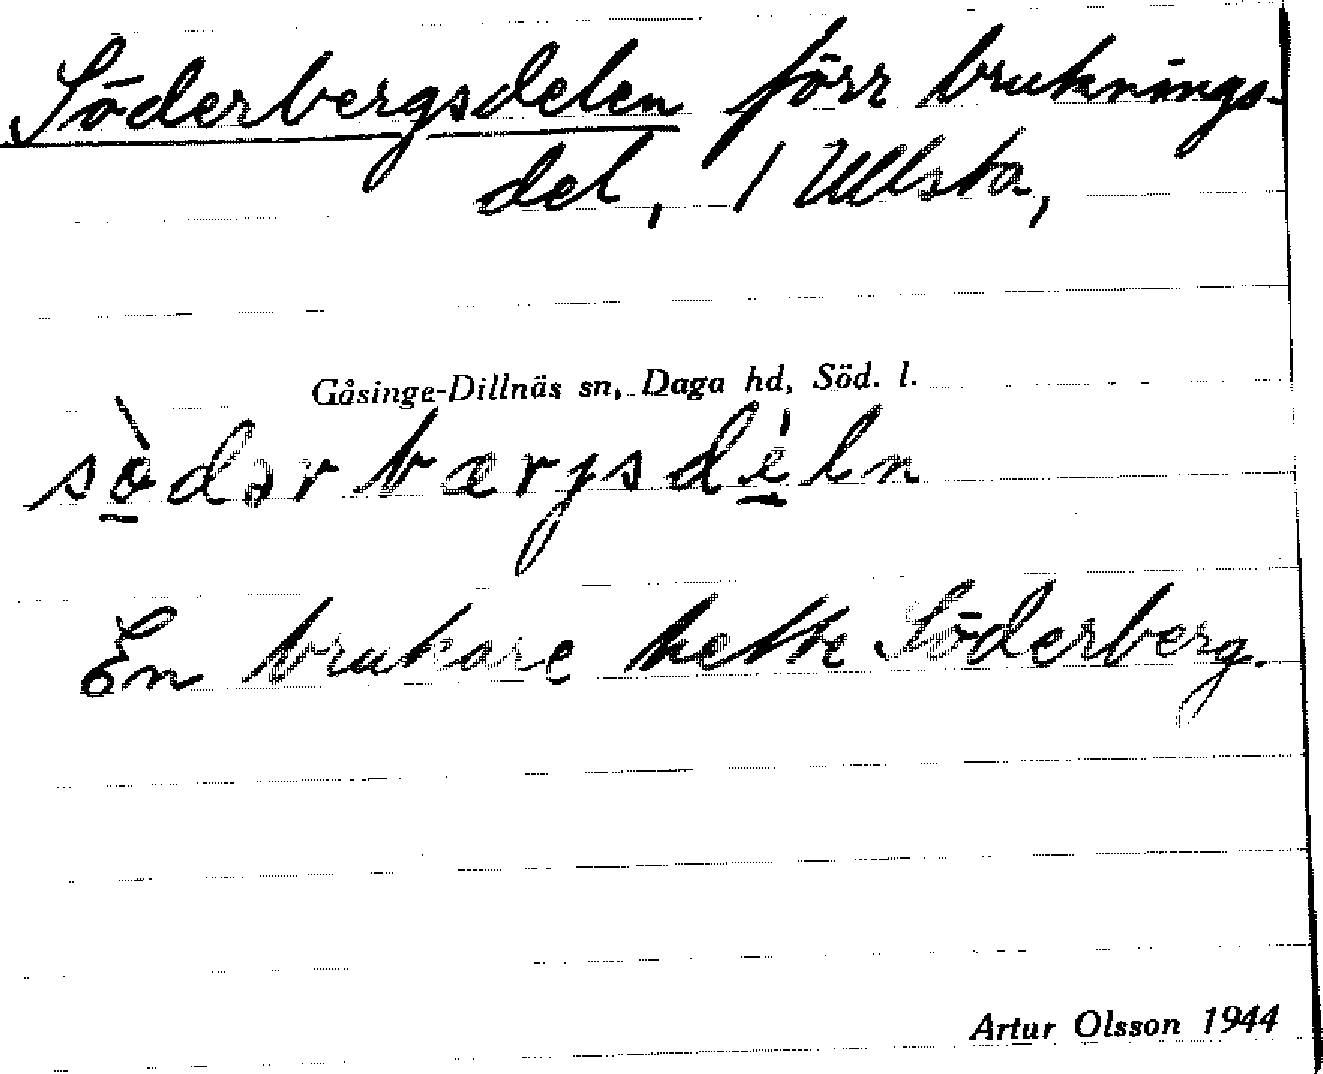 Söderbergsdelen förr bruknings-
del, 1 Ullsta,
Gåsinge-Dillnäs sn, Daga hd, Söd. l.
sö̀dər bærjsdéln
En brukare hette Söderberg.
Artur Olsson 1944